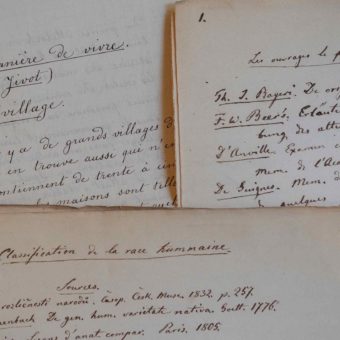 anière de vivre.
Jivot)
village.
y a de grands villages d
en trouve aussi qui n'e
tiennent de trente à
maisons sont telle
1.
Les ouvrages le p
Th. S. Bayeri. De ori
F. W. Beers. Erläute
bung, des alte
D'Anville. Examen c
Mem. de l'Aca
De Guignes. Mem. d
quelques
Classification de la race hummaine
Sources.
rozličnosti narodů. Časop. Česk. Mus. 1832. p. 257.
enbach. De gen. hum. varietate nativa. Gött. 1776.
d'anat. compar. Paris. 1805.